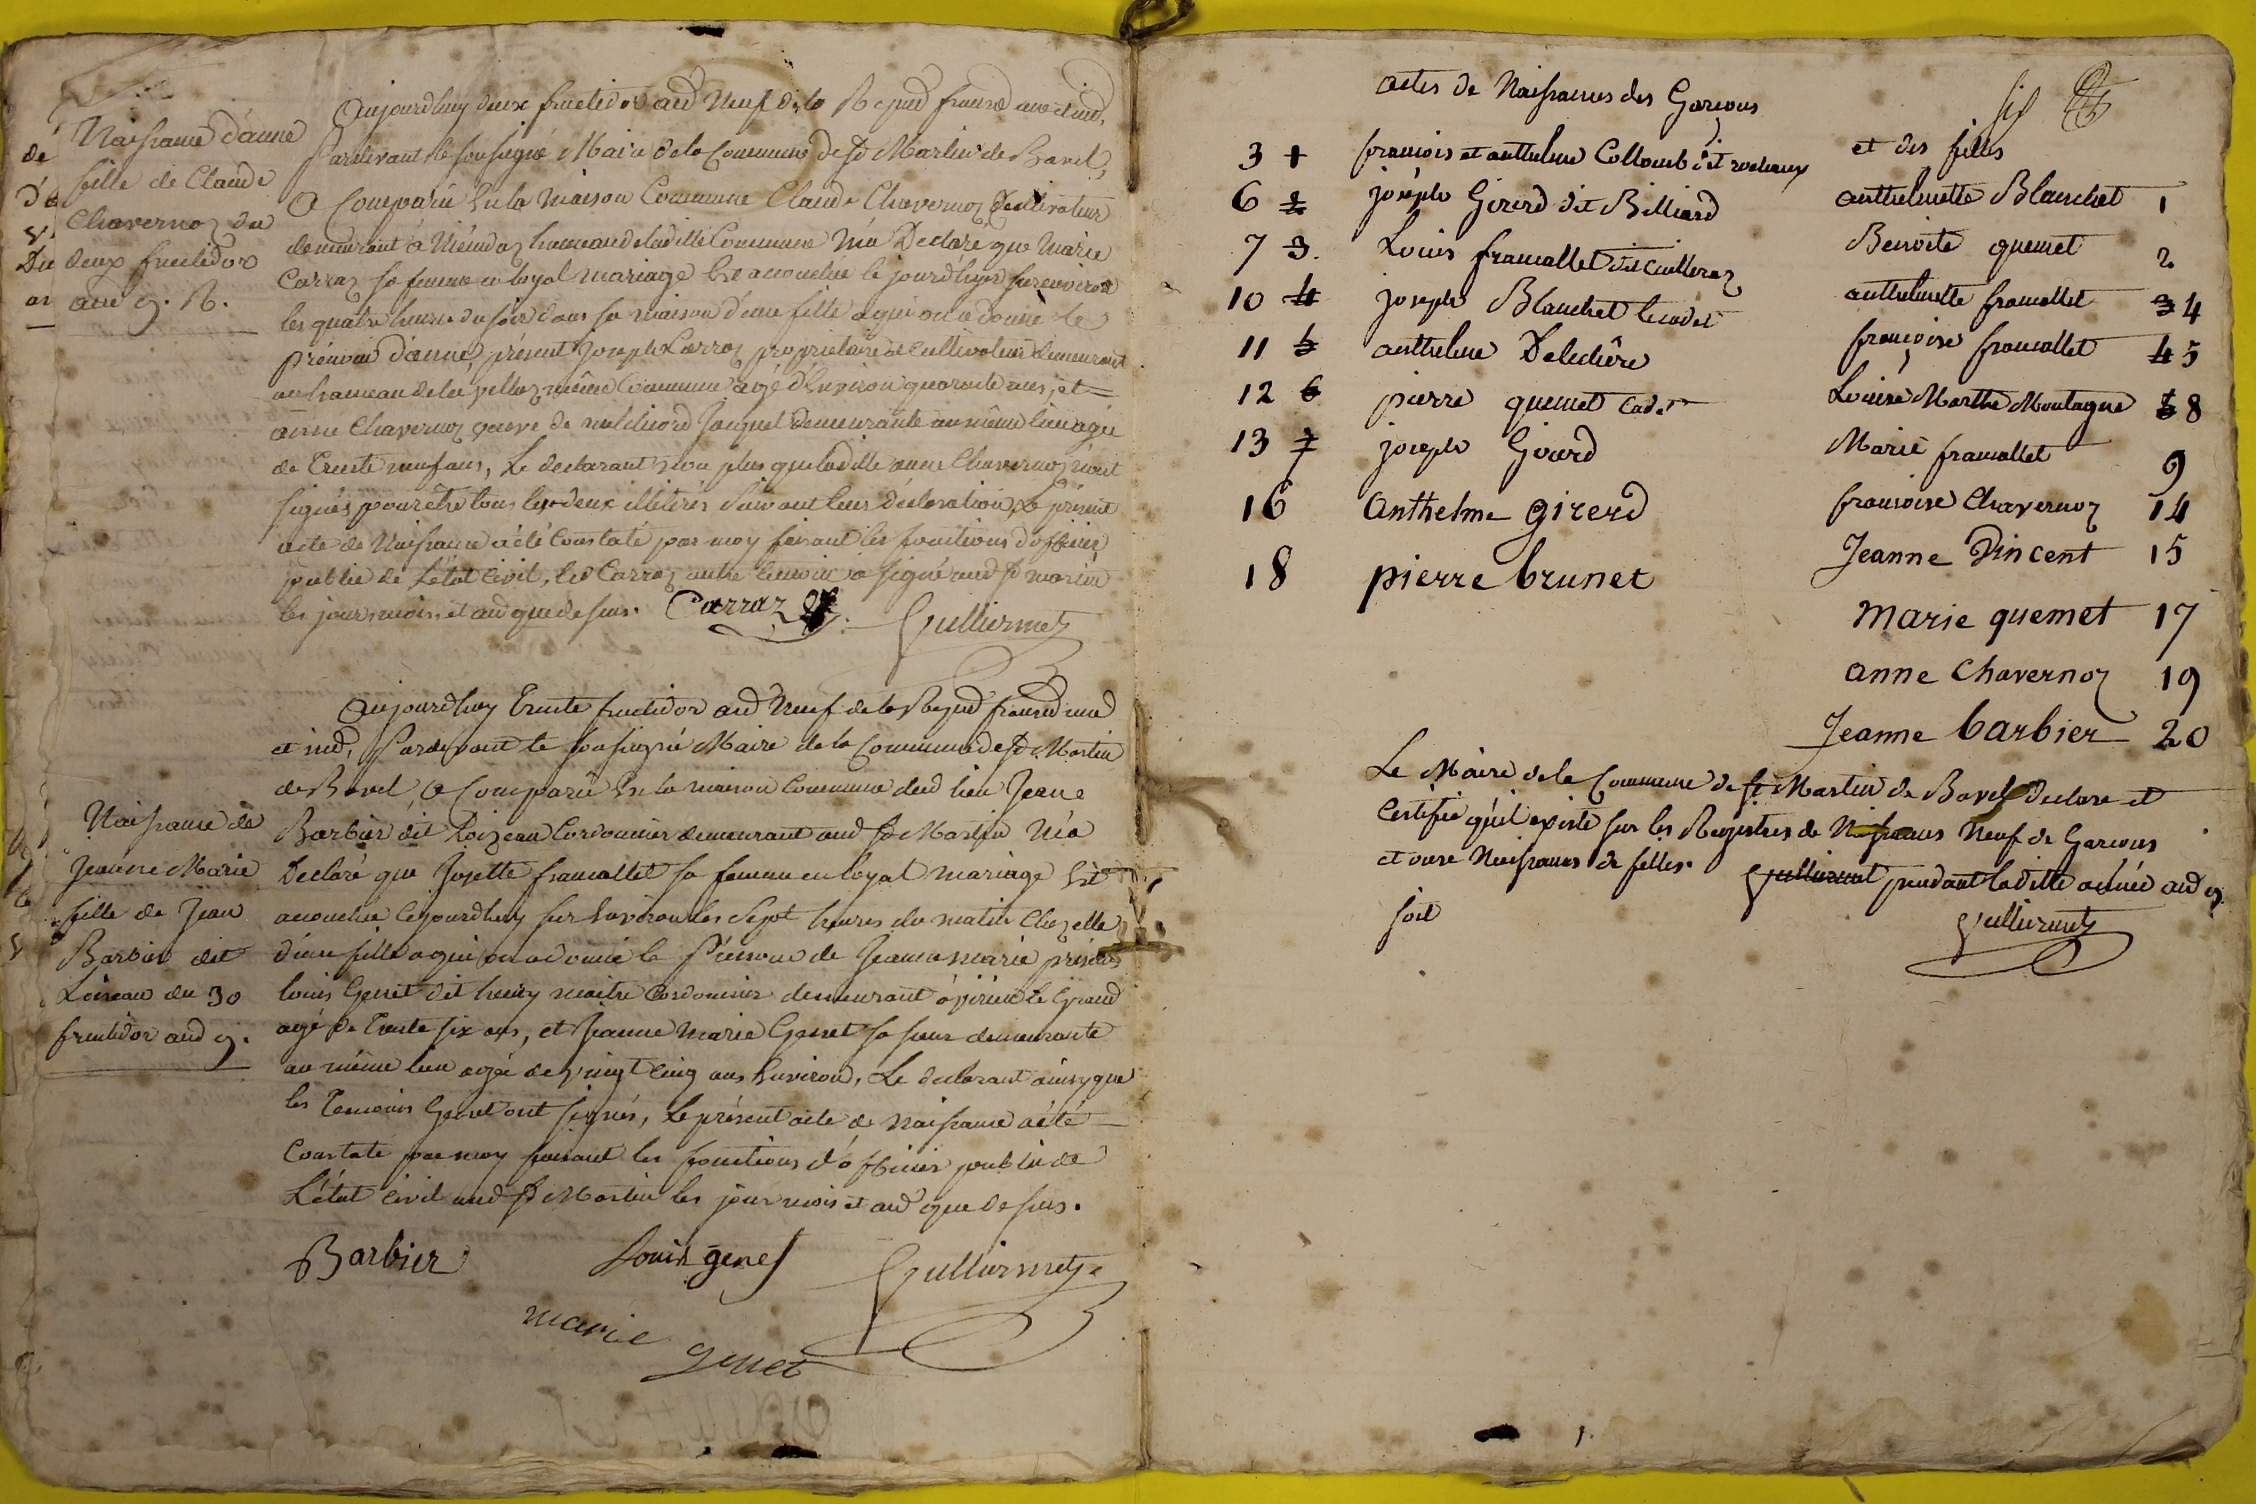 Naissance d'anne
fille de Claude
Chavernoz du
deux fructidor
and 9. R.
Aujourdhuy deux fructidor and Neuf de la Repud francd une et ind,
Pardevant le soussigné Maire de la Commune de St Martin de Bavel,
a Comparu En la maison Commune Claude Chavernoz Cultivateur
demeurant à hameau de ladille Commune M'a Declaré que Marie
Carraz sa femme en loyal mariage Est accouchée le jourdhuy sur environ
les quatre heures du soir dans sa maison d'une fille a qui on a donné le
prénom d'anne, présent Joseph Carraz propriétaire et Cultivateur demeurant
au hameau de la même Commune agé d'Environ quarante ans, et
anne Chavernoz veuve de melchiord Jacquet demeurante au même lieu agée
de Trente neuf ans, Le declarant non plus que ladille anne Chavernoz n'ont
signés pour être tous les deux illitérés suivant leur déclaration, Le présent
acte de Naissance a été Constaté par moy faisant les fonctions d'officier
public de L'état Civil, led Carraz autre temoin a signé aud St martin
les jour mois et and que dessus. Carraz
Gulliermet
Naissance de
Jeanne Marie
fille de Jean
Barbier dit
Loiseau du 30
fructidor and 9.
Aujourdhuy Trente fructidor and Neuf de la Repud francd une
et ind, Pardevant le soussigné Maire de la Commune de St Martin
de Bavel, a Comparu En la maison Commune dud lieu Jean
Barbier dit Loizeau Cordonnier demeurant aud St Martin M'a
Declaré que Josette francallet sa femme en loyal mariage Est
accouchée cejourdhuy sur Environ les Sept heures du matin Chez elle
d'une fille a qui on a donné le Prénom de Jeanne Marie présents
louis Genet dit henry maitre Cordonnier demeurant à virieu le Grand
agé de Trente six ans, et Jeanne marie Genet sa sœur demeurante
au même lieu agée de vingt Cinq ans Environ, Le declarant ainsy que
les Temoins Genet ont signés, Le présent acte de Naissance a été
Constaté par moy faisant les fonctions d'officier public de
L'état Civil aud St Martin les jour mois et and que dessus.
Barbier Louis genet Gulliermet
marie genet
actes de Naissances des Garcons
3 1 francois et anthelme Collomb dit rochaux
6 2 joseph Girerd dit Billiard
7 3. Louis francallet dit Cuilleraz
10 4 joseph Blanchet le cadet
11 5 anthelme Deleclière
12 6 pierre quemet Cadet
13 7 joseph Girerd
16 Anthelme girerd
18 pierre brunet
et des filles
anthelmette Blanchet 1
Benoite quemet 2
anthelmette francallet 3 4
françoise francallet 4 5
Louise Marthe Montagne 5 8
Marie francallet 9
francoise Chavernoz 14
Jeanne Vincent 15
Marie quemet 17
anne Chavernoz 19
Jeanne barbier 20
Le Maire de la Commune de St Martin de Bavel declare et
Certifie qu'il existe sur les Registres de Naissances Neuf de Garcons
et onze Naissances de filles. Gulliermet pendant ladille année and 9.
soit
Gulliermet